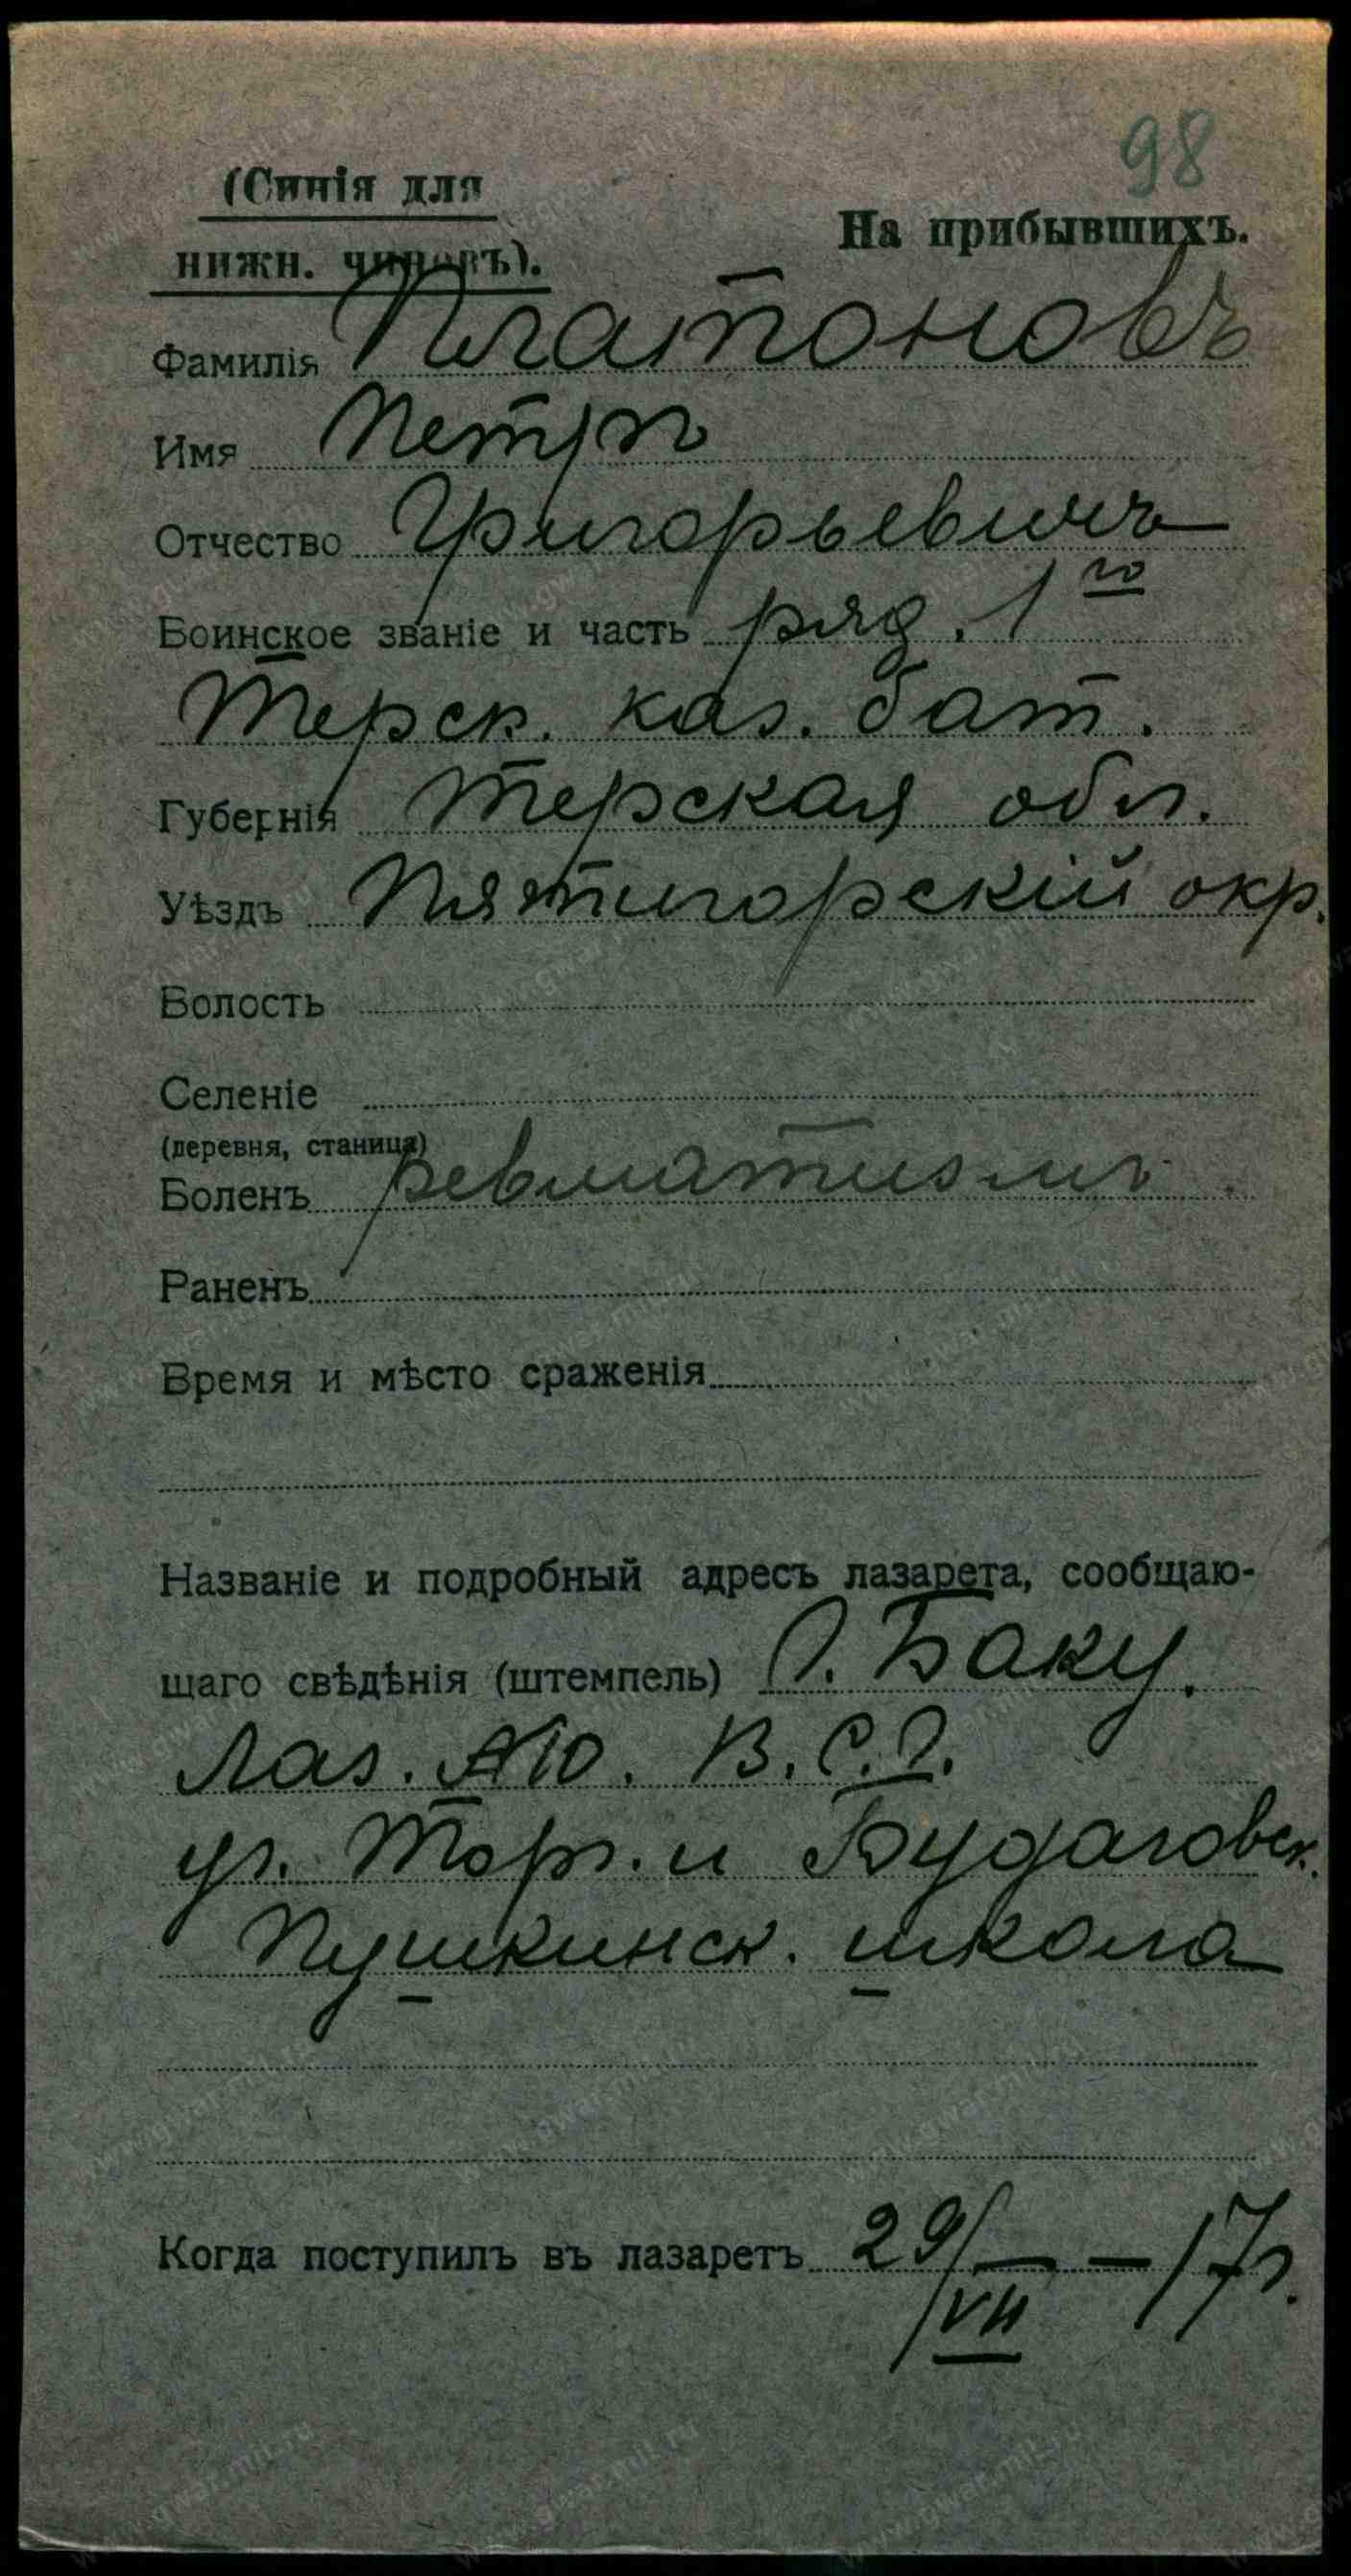 98
(Синія для
нижн. чиновъ).
На прибывшихъ.
Фамилія Платоновъ
Имя Петръ
Отчество Григорьевичъ
Воинское званіе и часть ряд. 1го
Терск. каз. бат.
Губернія Терская обл.
Уѣздъ Пятигорскій окр.
Волость
Селеніе
(деревня, станица)
Боленъ ревматизмъ.
Раненъ
Время и мѣсто сраженія
Названіе и подробный адресъ лазарета, сообщаю-
щаго свѣдѣнія (штемпель) Г. Баку.
Лаз. №10. В. С. Г.
уг. Торг. и Будаговск.
Пушкинск. школа
Когда поступилъ въ лазаретъ 29/VII – 17г.
www.gwar.mil.ru